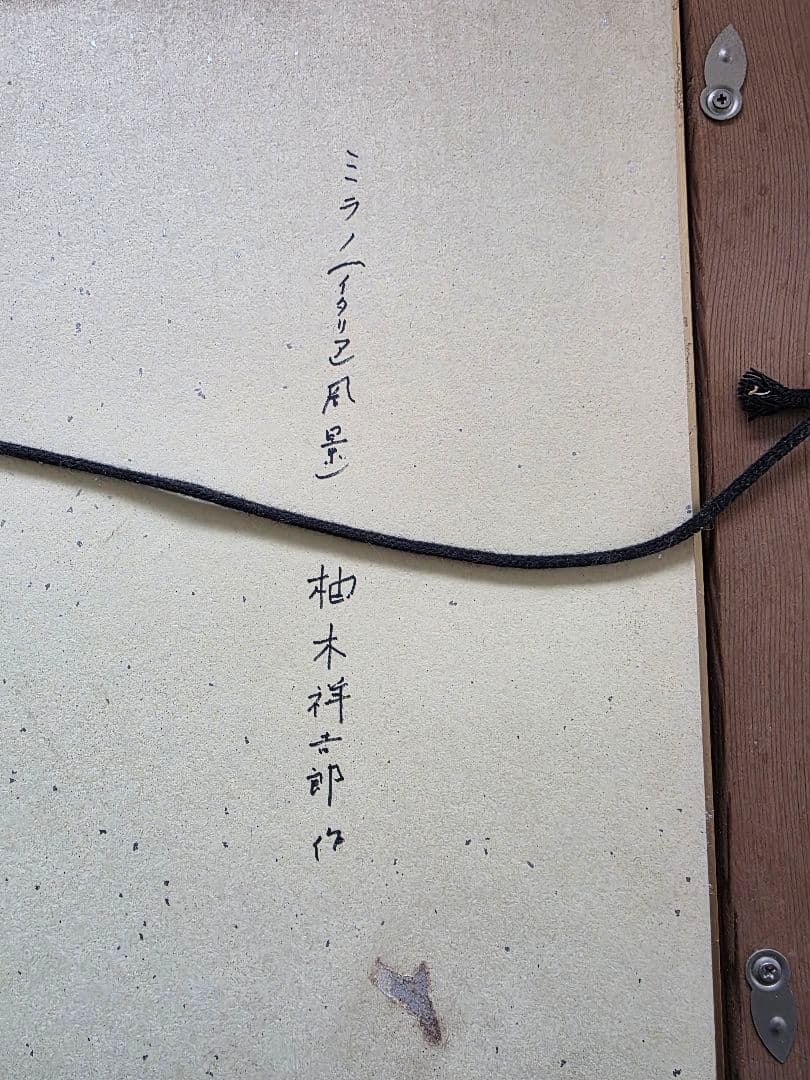 ミラノ(イタリア)風景)
柚木祥吉郎 作